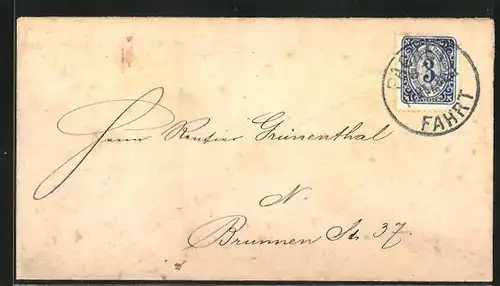 3
PACKET
FAHRT
Herrn Rentier Grünenthal
N.
Brunnen St. 37.